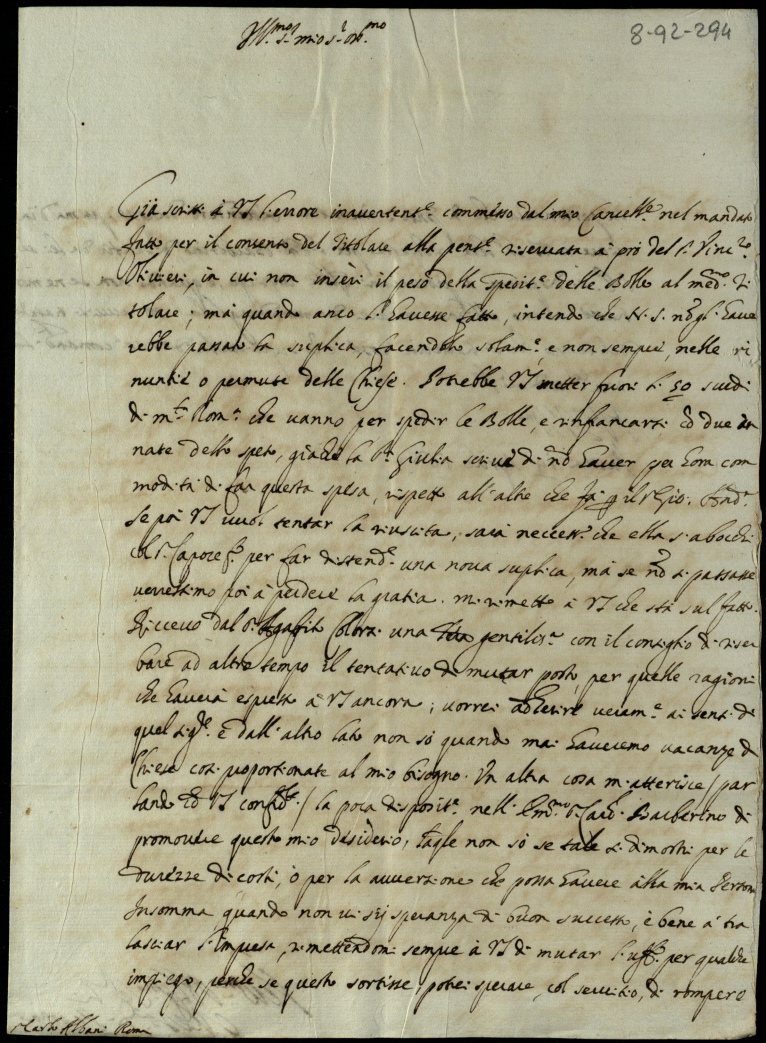 Ill.mo S.r mio S.r oss.mo
8-92-294
Già scrissi à VS l'errore inavertent.e commesso dal mio Cancell.re nel mandato
fatto per il consenso del Titolare alla pens.e riservata à prò del S.r Vinc.zo
Olivieri, in cui non inserì il peso della spedit.e delle Bolle al med.mo Ti
tolare; mà quando anco l'havesse fatto, intendo che N. S. non gl'have
rebbe passata la suplica, facendolo solam.e, e non sempre, nelle ri
nuntie o permute delle Chiese. Potrebbe VS metter fuori li 50 scudi
di m.ta Rom.a che vanno per spedir le Bolle, e rinfrancarsi
nate dello speso, giache la S.ra Giulia scrive di nõ haver per hora com
modità di far questa spesa, rispetto all'altre che fà il S.r Gio.
Se poi VS vuol tentar la riuscita, sarà necess.o che ella s'abocchi
col S.r Capoce per far distend.e una nova suplica, mà se nõ si passasse
verressimo poi à perdere la gratia. mi rimetto à VS che stà sul fatto.
Riccevo dal S.r una gentiliss.a con il consiglio di riser
bare ad altro tempo il tentativo di mutar posto, per quelle ragioni
che haverà esposte à VS ancora; vorrei aderire veram.e ai sensi di
quel Sig.re e dall'altro lato non sò quando mai haveremo vacanze di
Chiese così proportionate al mio bisogno. Un altra cosa m'atterisce / par
lando cõ VS / la poca disposit.e nell'Em.mo S.r Card. Barberino di
promovere questo mio desiderio, quale non sò se tale si dimostri per le
durezze di costì, ò per la avversione che possa havere alla mia Persona
Insomma quando non vi sij speranza di buon successo, è bene à tra
lasciar l'impresa, rimettendomi sempre à VS di mutar l'uff.o per qualche
impiego, perche se questo sortisse potrei sperare, col servitio, di rompere
S.r Carlo Albani Roma